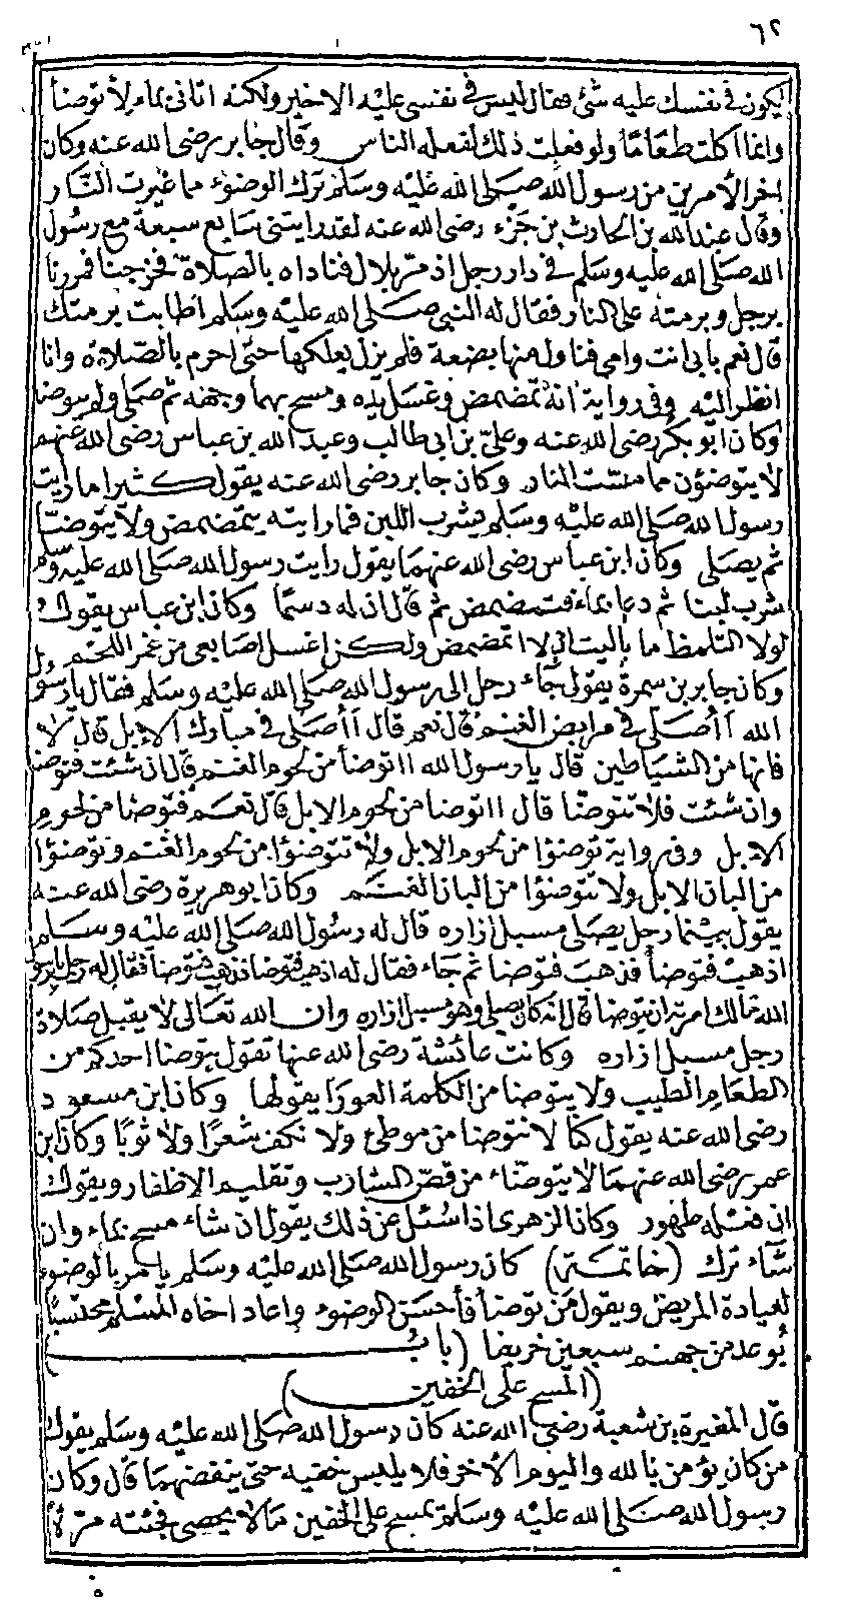 ٦٢
يكون في نفسك عليه شئ فقال ليس في نفسى عليه الا خير ولكنه اتانى بماء لأتوضأ
وانما اكلت طعاما ولو فعلت ذلك لفعله الناس وقال جابر رضى الله عنه وكان
اخر الأمرين من رسول الله صلى الله عليه وسلم ترك الوضوء مما غيرت النار
وقال عبد الله بن الحارث بن جزء رضى الله عنه لقد رايتنى سابع سبعة مع رسول
الله صلى الله عليه وسلم في دار رجل اذ مر بلال فناداه بالصلاة فخرجنا فمررنا
برجل وبرمته على النار فقال له النبي صلى الله عليه وسلم اطابت برمتك
قال نعم بابى انت وامى فناوله منها بضعة فلم يزل يعلكها حتى احرم بالصلاة وانا
انظر اليه وفى رواية انه تمضمض وغسل يده ومسح بهما وجهه ثم صلى ولم يتوضا
وكان ابو بكر رضى الله عنه وعلى بن ابى طالب وعبد الله بن عباس رضى الله عنهم
لا يتوضؤن مما مست النار وكان جابر رضى الله عنه يقول كثيرا ما رايت
رسول الله صلى الله عليه وسلم يشرب اللبن فما رايته يتمضمض ولا يتوضأ
ثم يصلى وكان ابن عباس رضى الله عنهما يقول رايت رسول الله صلى الله عليه وسلم
شرب لبنا ثم دعا بماء فتمضمض ثم قال ان له دسما وكان ابن عباس يقول
لولا التلمظ ما باليت ان لا اتمضمض ولكن اغسل اصابعى من غمر اللحم
وكان جابر بن سمرة يقول جاء رجل الى رسول الله صلى الله عليه وسلم فقال يا رسول
الله أأصلى في مرابض الغنم قال نعم قال أأصلى في مبارك الابل قال لا
فانها من الشياطين قال يا رسول الله ااتوضأ من لحوم الغنم قال ان شئت فتوضا
وان شئت فلا تتوضا قال ااتوضا من لحوم الابل قال نعم فتوضا من لحوم
الابل وفى رواية توضئوا من لحوم الابل ولا تتوضئوا من لحوم الغنم وتوضئوا
من البان الابل ولا تتوضئوا من البان الغنم وكان ابو هريرة رضى الله عنه
يقول بينما رجل يصلى مسبل ازاره قال له رسول الله صلى الله عليه وسلم
اذهب فتوضأ فذهب فتوضا ثم جاء فقال له اذهب فتوضا فذهب فتوضأ فقال له رجل يا رسول
الله مالك امرته ان يتوضا قال انه كان يصلى وهو مسبل ازاره وان الله تعالى لا يقبل صلاة
رجل مسبل ازاره وكانت عائشة رضى الله عنها تقول يتوضا احدكم من
الطعام الطيب ولا يتوضا من الكلمة العورا يقولها وكان ابن مسعود
رضى الله عنه يقول كنا لا نتوضا من موطئ ولا نكف شعرا ولا ثوبا وكان ابن
عمر رضى الله عنهما لا يتوضاء من قص الشارب وتقليم الاظفار ويقول
ان فعله طهور وكان الزهرى اذا سئل عن ذلك يقول ان شاء مسح بماء وان
شاء ترك (خاتمة) كان رسول الله صلى الله عليه وسلم يأمر بالوضوء
لعيادة المريض ويقول من توضأ فأحسن الوضوء واعاد اخاه المسلم محتسبا
بوعد من جهنم سبعين خريفا (باب
المسح على الخفين)
قال المغيرة بن شعبة رضى الله عنه كان رسول الله صلى الله عليه وسلم يقول
من كان يؤمن بالله واليوم الآخر فلا يلبس خفيه حتى ينفضهما قال وكان
رسول الله صلى الله عليه وسلم يمسح على الخفين مالا يحصى فجئته مرة